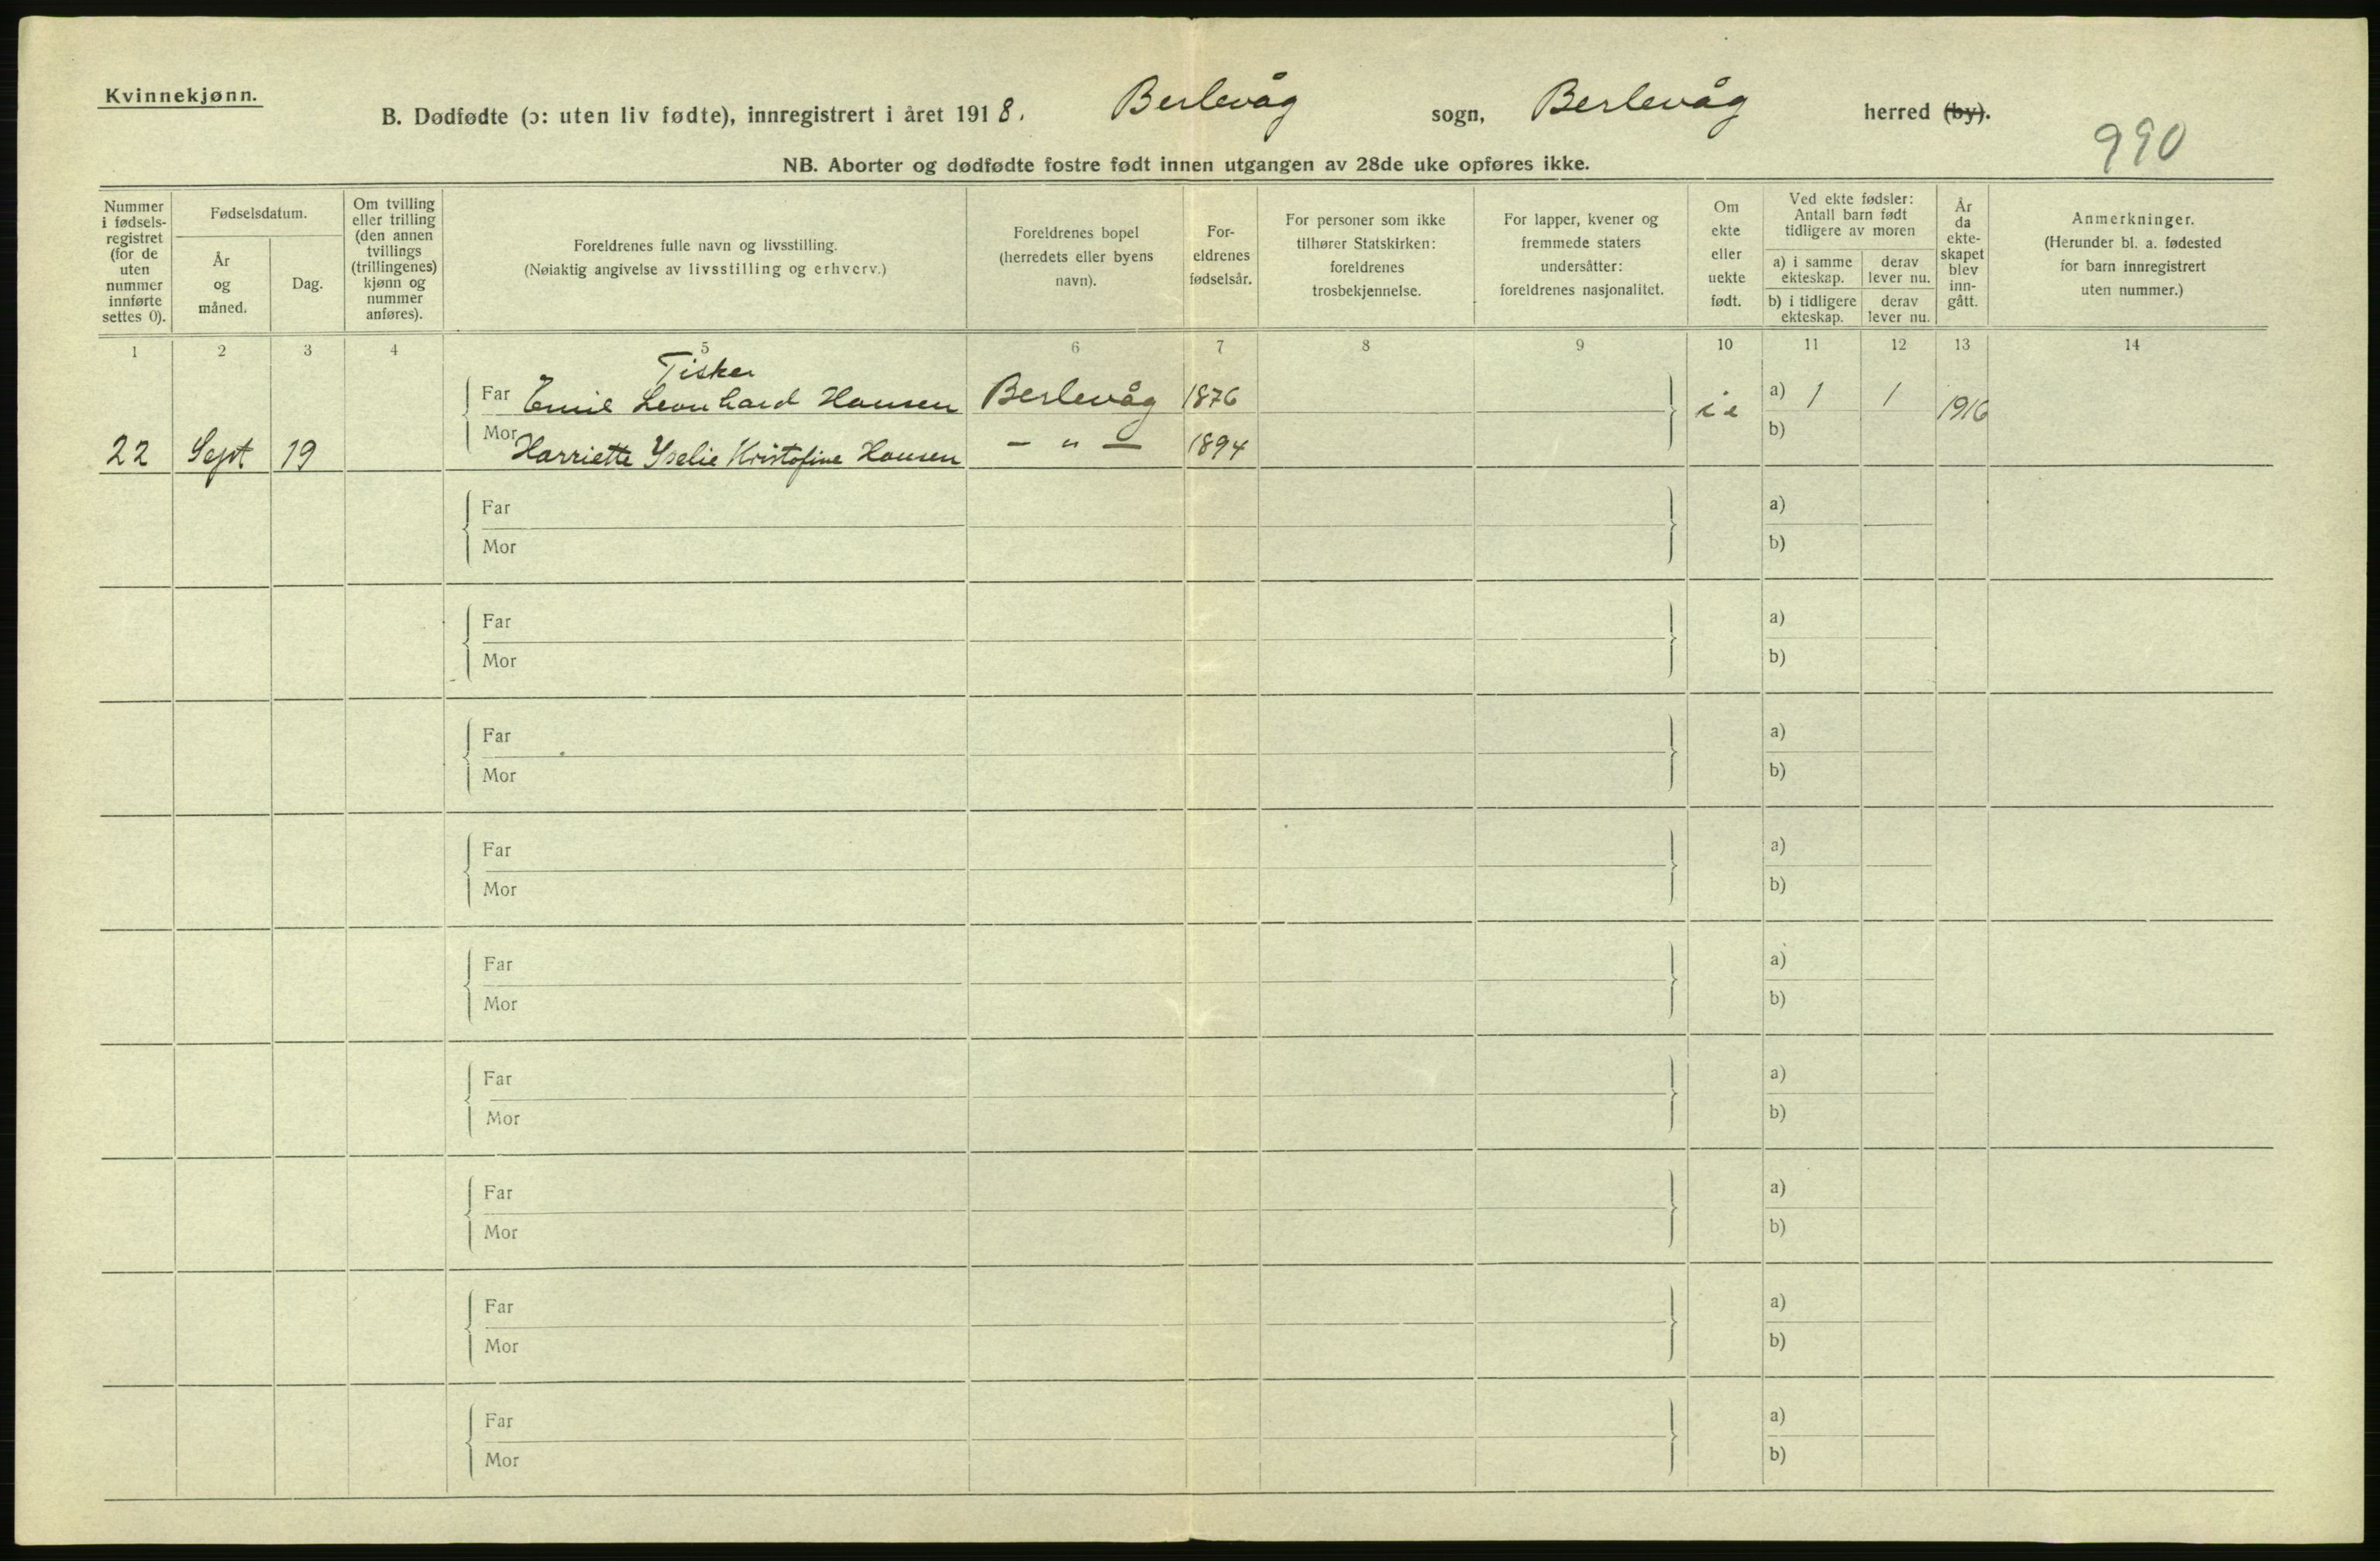 Kvinnekjønn.
B. Dødfødte (ɔ: uten liv fødte), innregistrert i året 1918. Berlevåg sogn, Berlevåg herred (by).
990
NB. Aborter og dødfødte fostre født innen utgangen av 28de uke opføres ikke.
Nummer i fødsels-registret (for de uten nummer innførte settes 0).
Fødselsdatum.
År og måned.
Dag.
Om tvilling eller trilling (den annen tvillings (trillingenes) kjønn og nummer anføres).
Foreldrenes fulle navn og livsstilling.
(Nøiaktig angivelse av livsstilling og erhverv.)
Foreldrenes bopel (herredets eller byens navn).
For-eldrenes fødselsår.
For personer som ikke tilhører Statskirken: foreldrenes trosbekjennelse.
For lapper, kvener og fremmede staters undersåtter: foreldrenes nasjonalitet.
Om ekte eller uekte født.
Ved ekte fødsler: Antall barn født tidligere av moren
a) i samme ekteskap.
derav lever nu.
b) i tidligere ekteskap.
derav lever nu.
År da ekte-skapet blev inn-gått.
Anmerkninger.
(Herunder bl. a. fødested for barn innregistrert uten nummer.)
1 2 3 4 5 6 7 8 9 10 11 12 13 14
Fisker
Far Emil Leonhard Hansen Berlevåg 1876 i e a) 1 1 1916
22 Sept 19 Mor Harriette Kristofine Hansen — „ — 1894 b)
Far a)
Mor b)
Far a)
Mor b)
Far a)
Mor b)
Far a)
Mor b)
Far a)
Mor b)
Far a)
Mor b)
Far a)
Mor b)
Far a)
Mor b)
Far a)
Mor b)